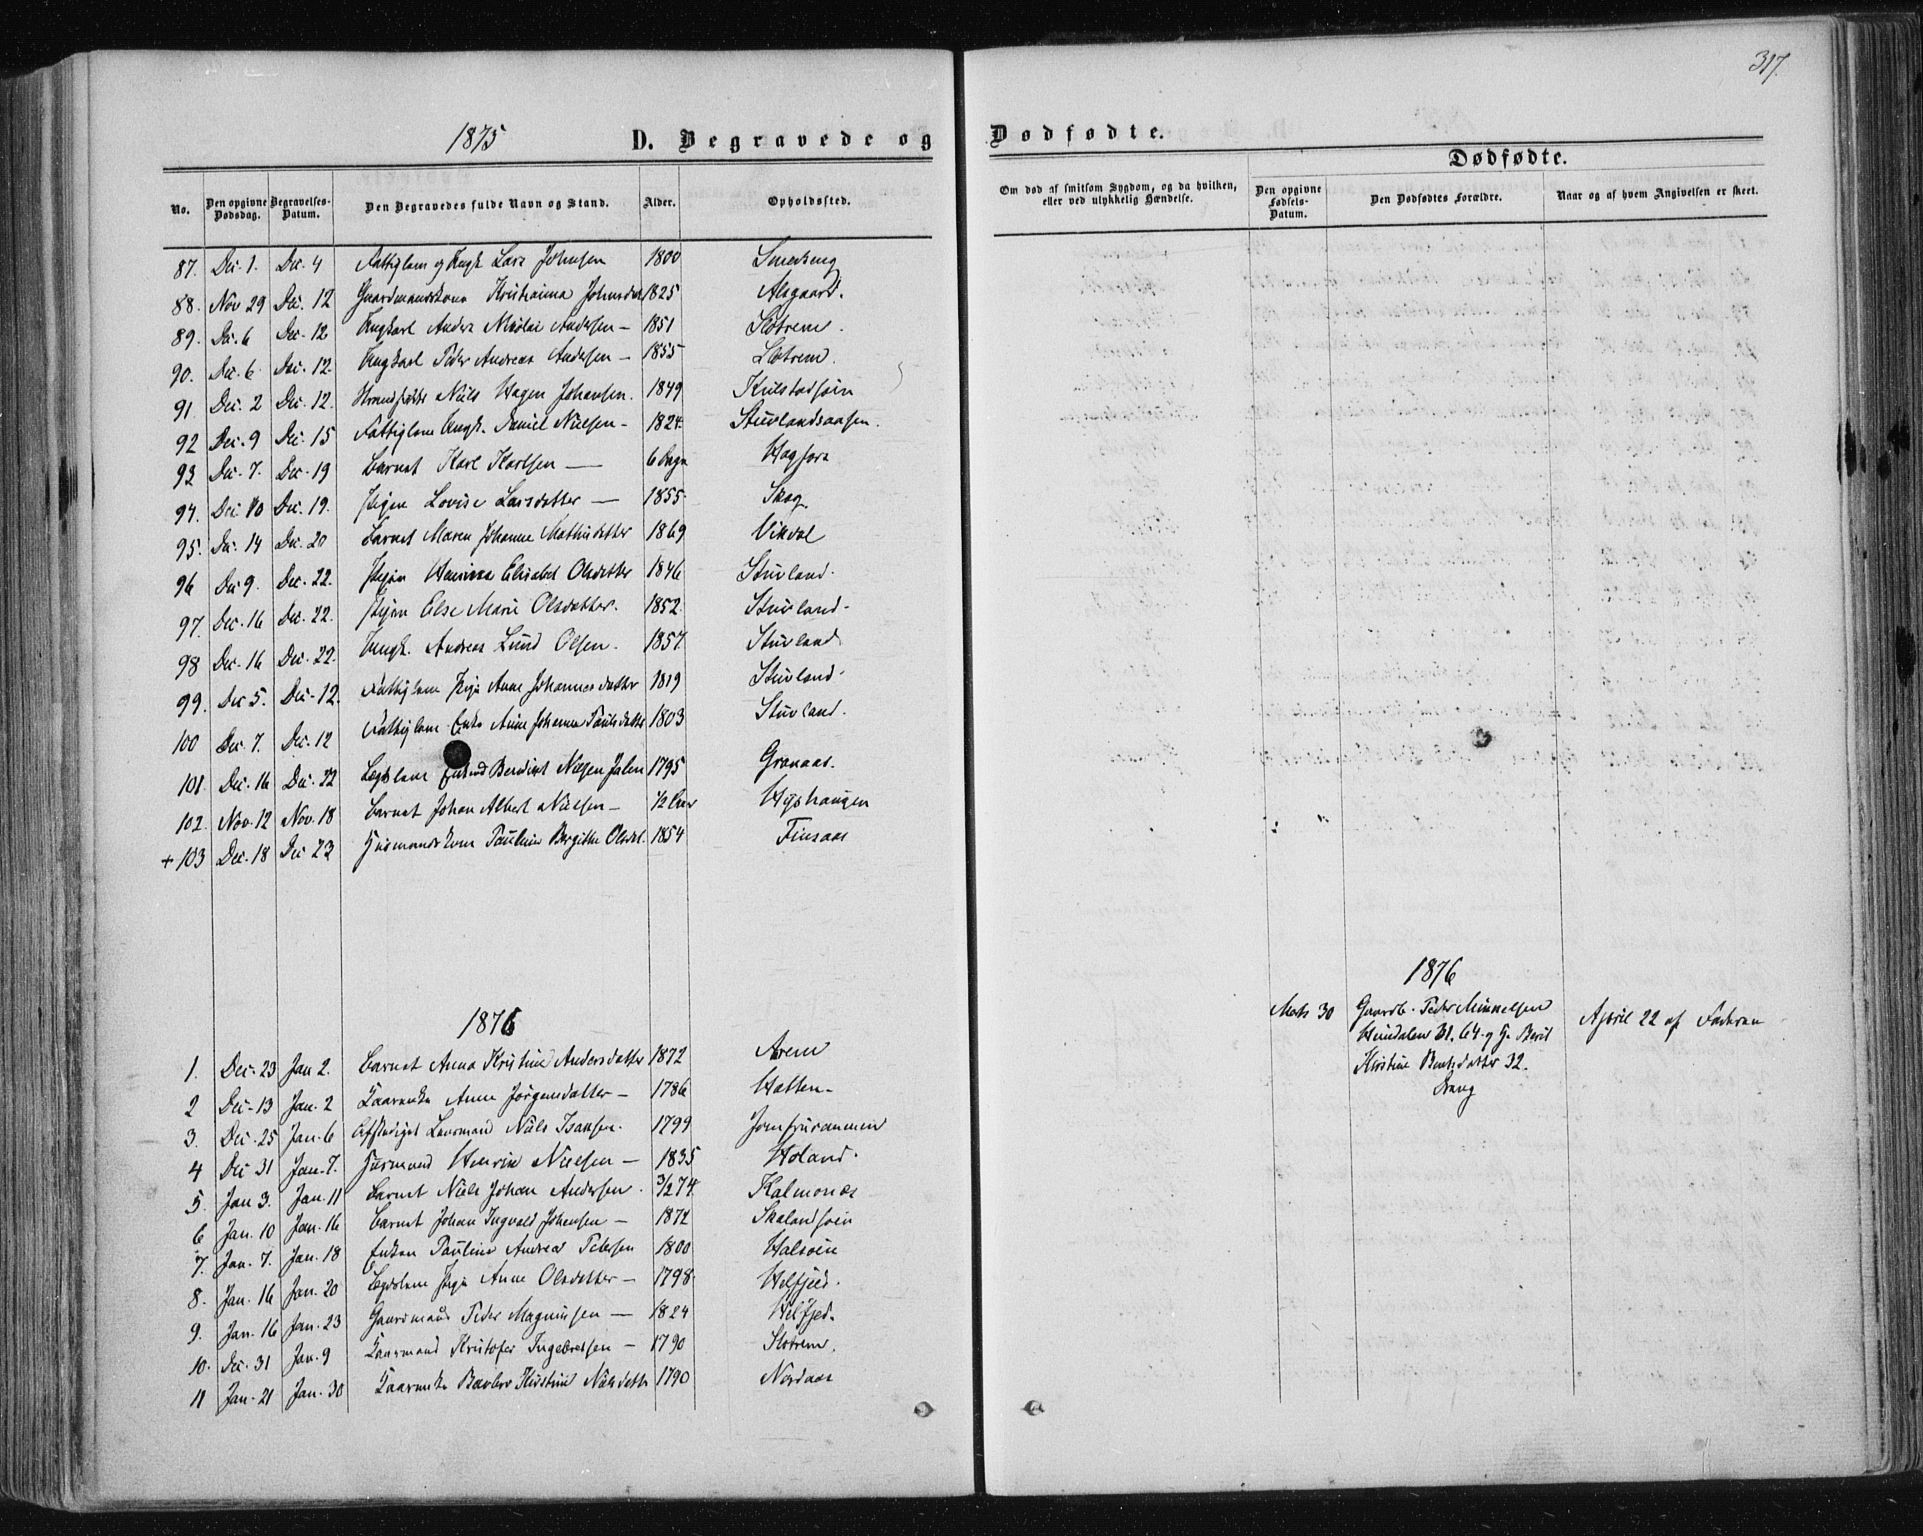 317.
1875 D. Begravede og Dødfødte.
Dødfødte.
No. Den opgivne Dødsdag. Begravelses-Datum. Den Begravedes fulde Navn og Stand. Alder. Opholdssted. Om død af smitsom Sygdom, og da hvilken, eller ved ulykkelig Hændelse. Den opgivne Fødsels-Datum. Den Dødfødtes Forældre. Naar og af hvem Angivelsen er skeet.
87. Dec. 1. Dec. 4 Fattiglem og Ungk. Lars Johnsen 1800 Smedseng
88. Nov 29 Dec. 12 Gaardmandskone Kristianna Johnsdat 1825 Alsgaard.
89. Dec. 6 Dec. 12 Ungkarl Anders Nikolai Andersen – 1851 Slotrem.
90. Dec. 6. Dec. 12. Ungkarl Peder Andreas Andersen – 1855 Slotrem.
91 Dec. 2 Dec. 12. Niels Hagen Johansen. 1849 Kulstadsøin
92 Dec. 9 Dec. 15 Fattiglem Ungk. Daniel Nielsen – 1824. Stuvlandsaasen.
93 Dec. 7. Dec. 19 Barnet Karl Karlsen — 6 Dage Hagfors
94. Dec. 10 Dec. 19. Pigen Lovise Larsdatter — 1855. Skog
95. Dec. 14 Dec. 20 Barnet Maren Johanne Mathisdatter 1869 Vikdal
96 Dec 9. Dec. 22. Pigen Elisabet Olsdatter 1846 Stuvland.
97. Dec. 16 Dec. 22. Pigen Else Marie Olsdatter. 1852. Stuvland.
98 Dec. 16 Dec. 22. Ungk. Andreas Lund Olsen. 1857. Stuvland
99. Dec 5. Dec. 12. Fattiglem Pige Anne Johannesdatter 1819 Stuvland.
100 Dec. 7. Dec. 12 Fattiglem Enke Anne Johanna Paulsdatter 1803 Stuvland.
101. Dec. 16 Dec. 22 Lægdslem Enkmd Berdinet Nielsen Jalen 1795 Granaas.
102. Nov. 12 Nov. 18 Barnet Johan Albert Nielsen – 1/2 Aar Høphaugen
+ 103 Dec. 18 Dec 23 Husmandskone Pauline Bergitte Olsdt. 1854 Finsaas
1876
1. Dec. 23 Jan 2. Barnet Anna Kristine Andersdatter 1872 Arem
2 Dec. 13 Jan. 2 Kaarenke Anne Jørgensdatter – 1786 Hatten.
3. Dec. 25 Jan. 6 Afskediget Laxmand Niels Isaksen. 1799 Jomfruremmen
4 Dec 31 Jan. 7. Husmand Henrik Nielsen – 1835 Høland.
5. Jan 3. Jan. 11 Barnet Niels Johan Andersen. 3/2 74. Kalmonæs
6 Jan. 10 Jan. 16 Barnet Johan Ingvald Johansen – 1872 Skalandsøin
7. Jan. 7. Jan. 18 Enken Pauline Andrea Petersen 1800 Halsøen
8. Jan. 16 Jan. 20 Lægdslem Pige Anne Olsdatter – 1798. Helfjed.
9. Jan. 16 Jan. 23 Gaardmand Peder Magnussen — 1824 Helfjed.
10. Dec. 31 Jan. 9 Kaarmand Kristofer Ingebretsen – 1790 Slotrem.
11 Jan. 21 Jan. 30 Kaarenke Barbro Kirstine Nielsdatter 1790 Nordaas
1876
Mats 30 Gaardb. Peder Mikkelsen April 22 af Faderen
Hundalen 31. 64. g H. Berit
Kirstine Bentsdatter 32.
Drang